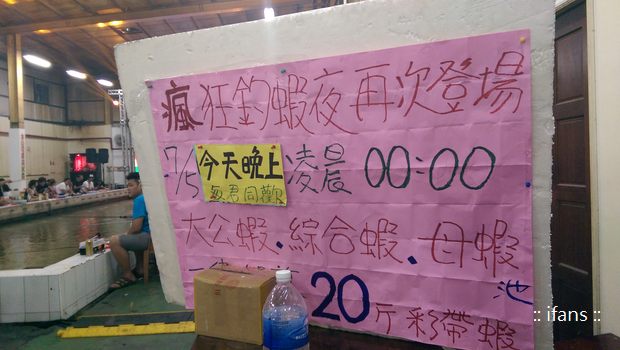 瘋狂釣蝦夜再次登場
7/5 今天晚上 凌晨 00:00
與君同歡
大公蝦、綜合蝦、母蝦
池
20斤彩帶蝦
:: ifans ::